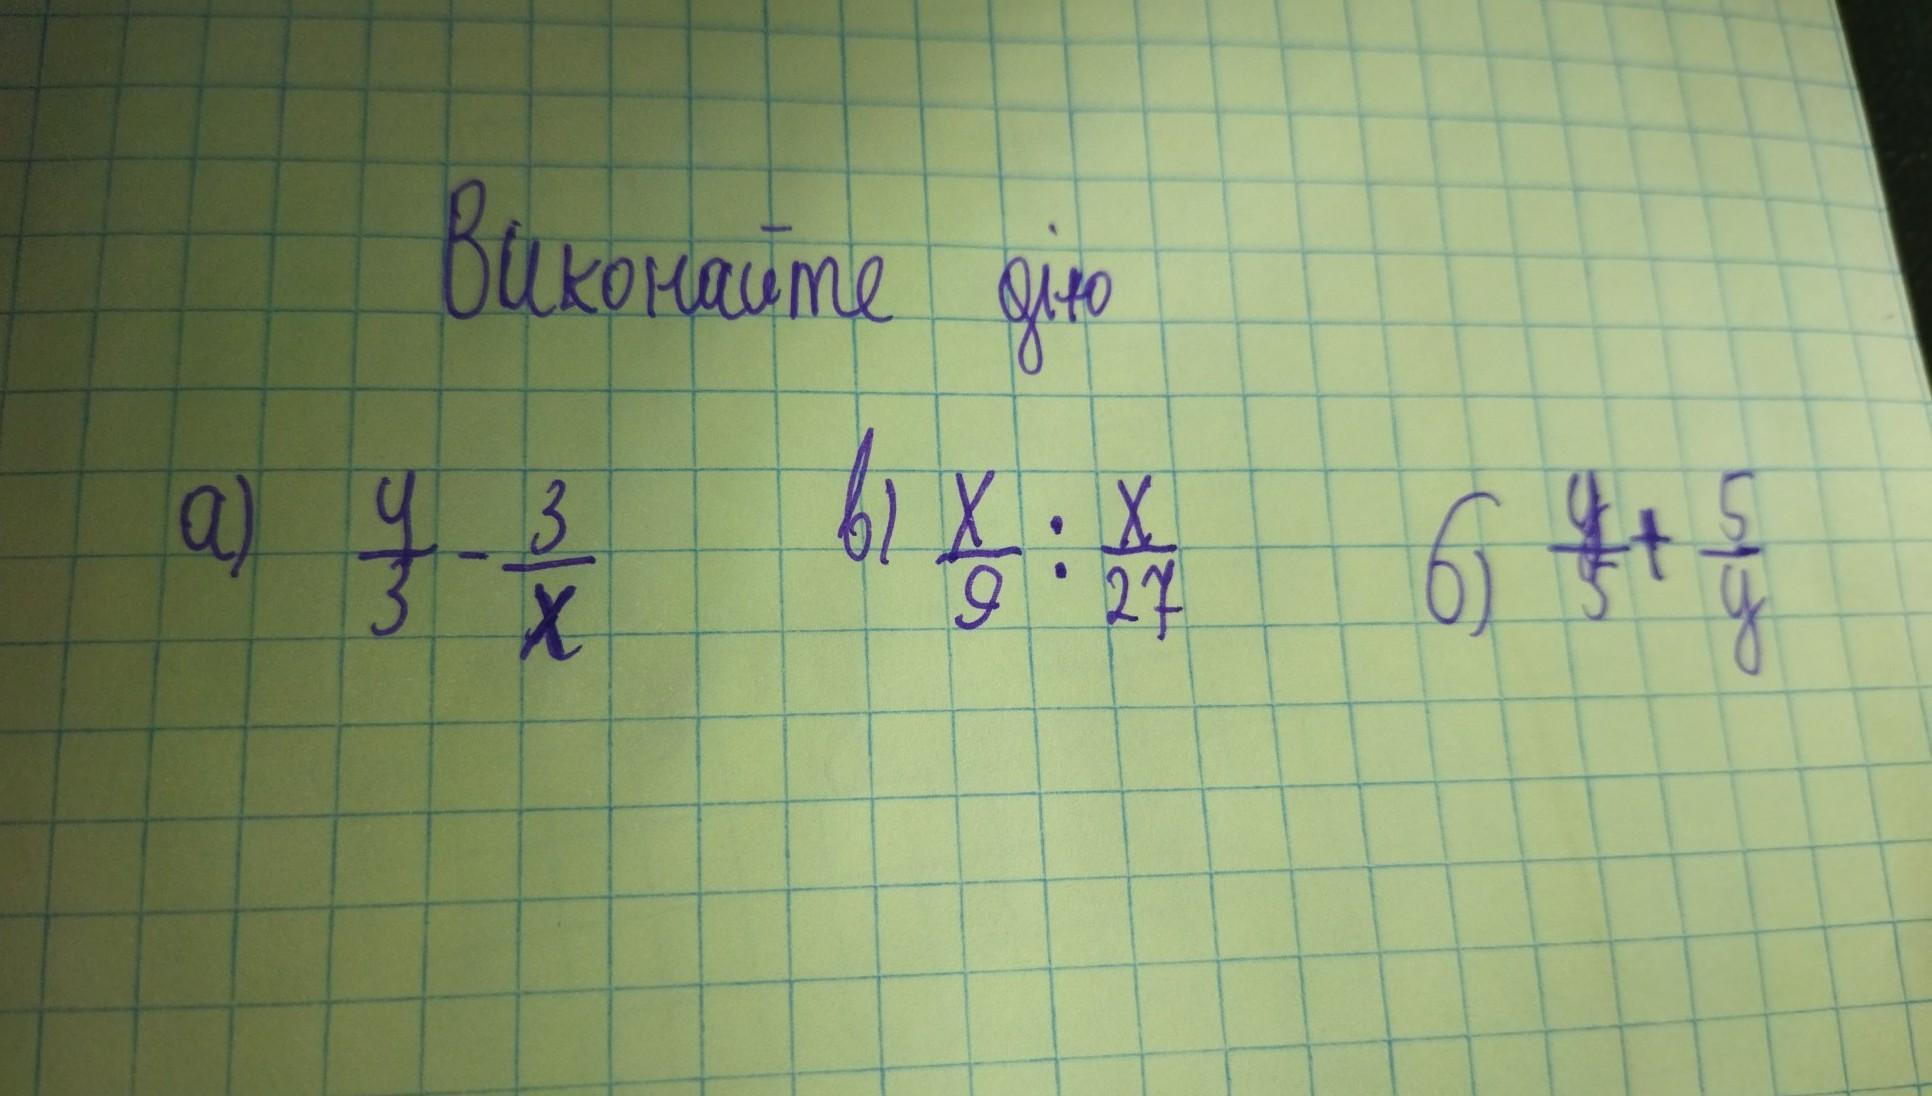 Виконайте дію
а) y/3 - 3/x в) x/9 : x/27 б) y/5 + 5/y